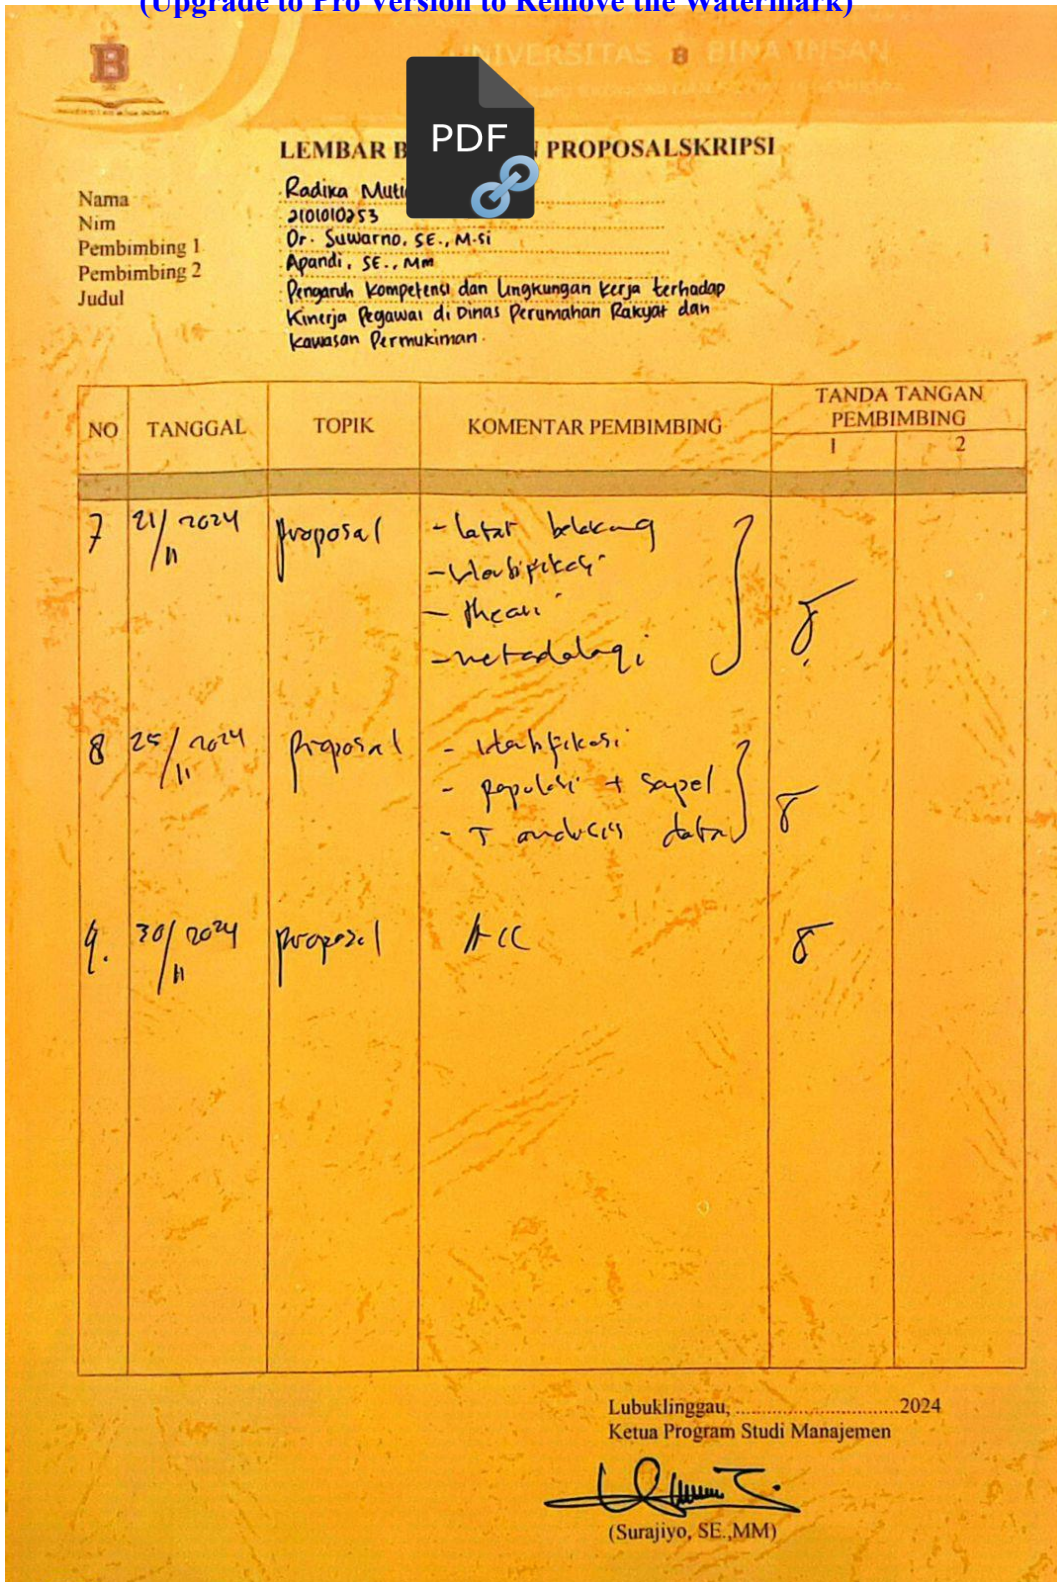 (Upgrade to Pro Version to Remove the Watermark)
UNIVERSITAS B BINA INSAN
B
PDF
LEMBAR B N PROPOSALSKRIPSI
Nama Radika
Nim 2101010253
Pembimbing 1 Dr. Suwarno, SE., M.si
Pembimbing 2 Apandi, SE., Mm
Judul Pengaruh Kompetensi dan Lingkungan Kerja terhadap
Kinerja Pegawai di Dinas Perumahan Rakyat dan
Kawasan Permukiman.
NO TANGGAL TOPIK KOMENTAR PEMBIMBING TANDA TANGAN
PEMBIMBING
1 2
7 21/11 2024 proposal - latar belakang
- Identifikasi
- theori
- metodologi
8 25/11 2024 proposal - Identifikasi
- populasi + sapel
- T analisis data
9. 30/11 2024 proposal ACC
Lubuklinggau, ..............................2024
Ketua Program Studi Manajemen
(Surajiyo, SE.,MM)